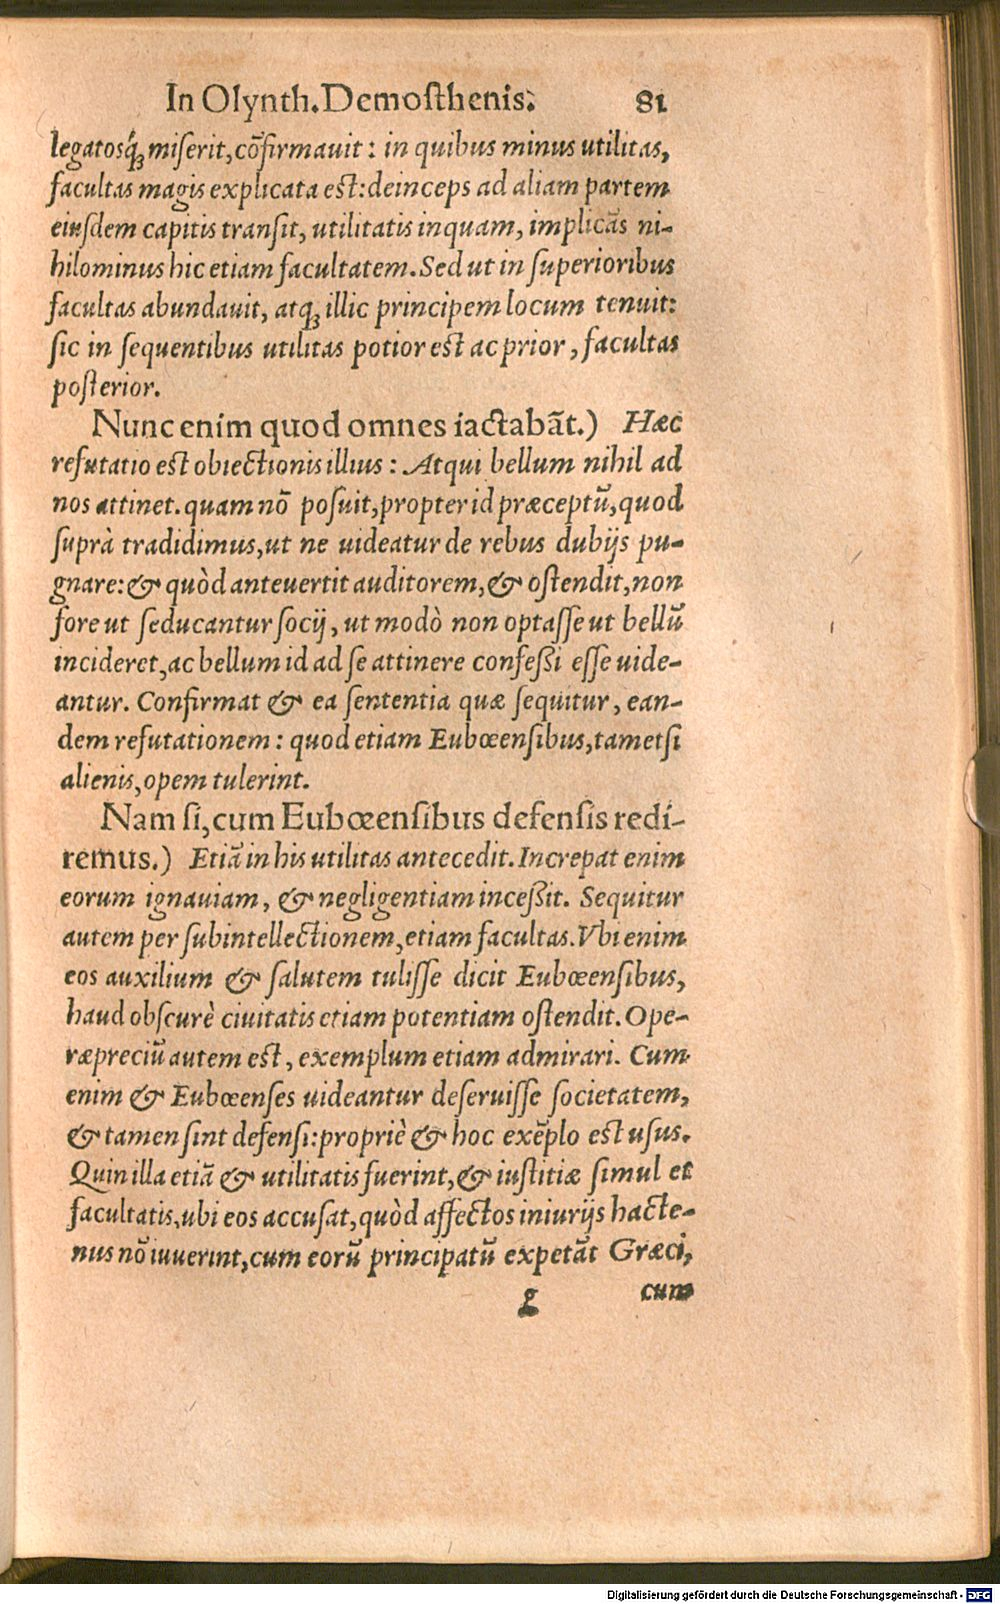 In Olynth. Demosthenis. 81
legatosq́ꝫ miserit, cõfirmauit: in quibus minus utilitas,
facultas magis explicata est: deinceps ad aliam partem
eiusdem capitis transit, utilitatis inquam, implicãs ni-
hilominus hic etiam facultatem. Sed ut in superioribus
facultas abundauit, atqꝫ illic principem locum tenuit:
sic in sequentibus utilitas potior est ac prior, facultas
posterior.
Nunc enim quod omnes iactabãt.) Hæc
refutatio est obiectionis illius: Atqui bellum nihil ad
nos attinet. quam nõ posuit, propter id præceptũ, quod
suprà tradidimus, ut ne uideatur de rebus dubijs pu-
gnare: & quòd anteuertit auditorem, & ostendit, non
fore ut seducantur socij, ut modò non optasse ut bellũ
incideret, ac bellum id ad se attinere confessi esse uide-
antur. Confirmat & ea sententia quæ sequitur, ean-
dem refutationem: quod etiam Eubœensibus, tametsi
alienis, opem tulerint.
Nam si, cum Eubœensibus defensis redi-
remus.) Etiã in his utilitas antecedit. Increpat enim
eorum ignauiam, & negligentiam incessit. Sequitur
autem per subintellectionem, etiam facultas. Vbi enim
eos auxilium & salutem tulisse dicit Eubœensibus,
haud obscurè ciuitatis etiam potentiam ostendit. Ope-
ræpreciũ autem est, exemplum etiam admirari. Cum
enim & Eubœenses uideantur deseruisse societatem,
& tamen sint defensi: propriè & hoc exẽplo est usus.
Quin illa etiã & utilitatis fuerint, & iustitiæ simul et
facultatis, ubi eos accusat, quòd affectos iniurijs hacte-
nus nõ iuuerint, cum eorũ principatũ expetãt Græci,
g cum
Digitalisierung gefördert durch die Deutsche Forschungsgemeinschaft - DFG